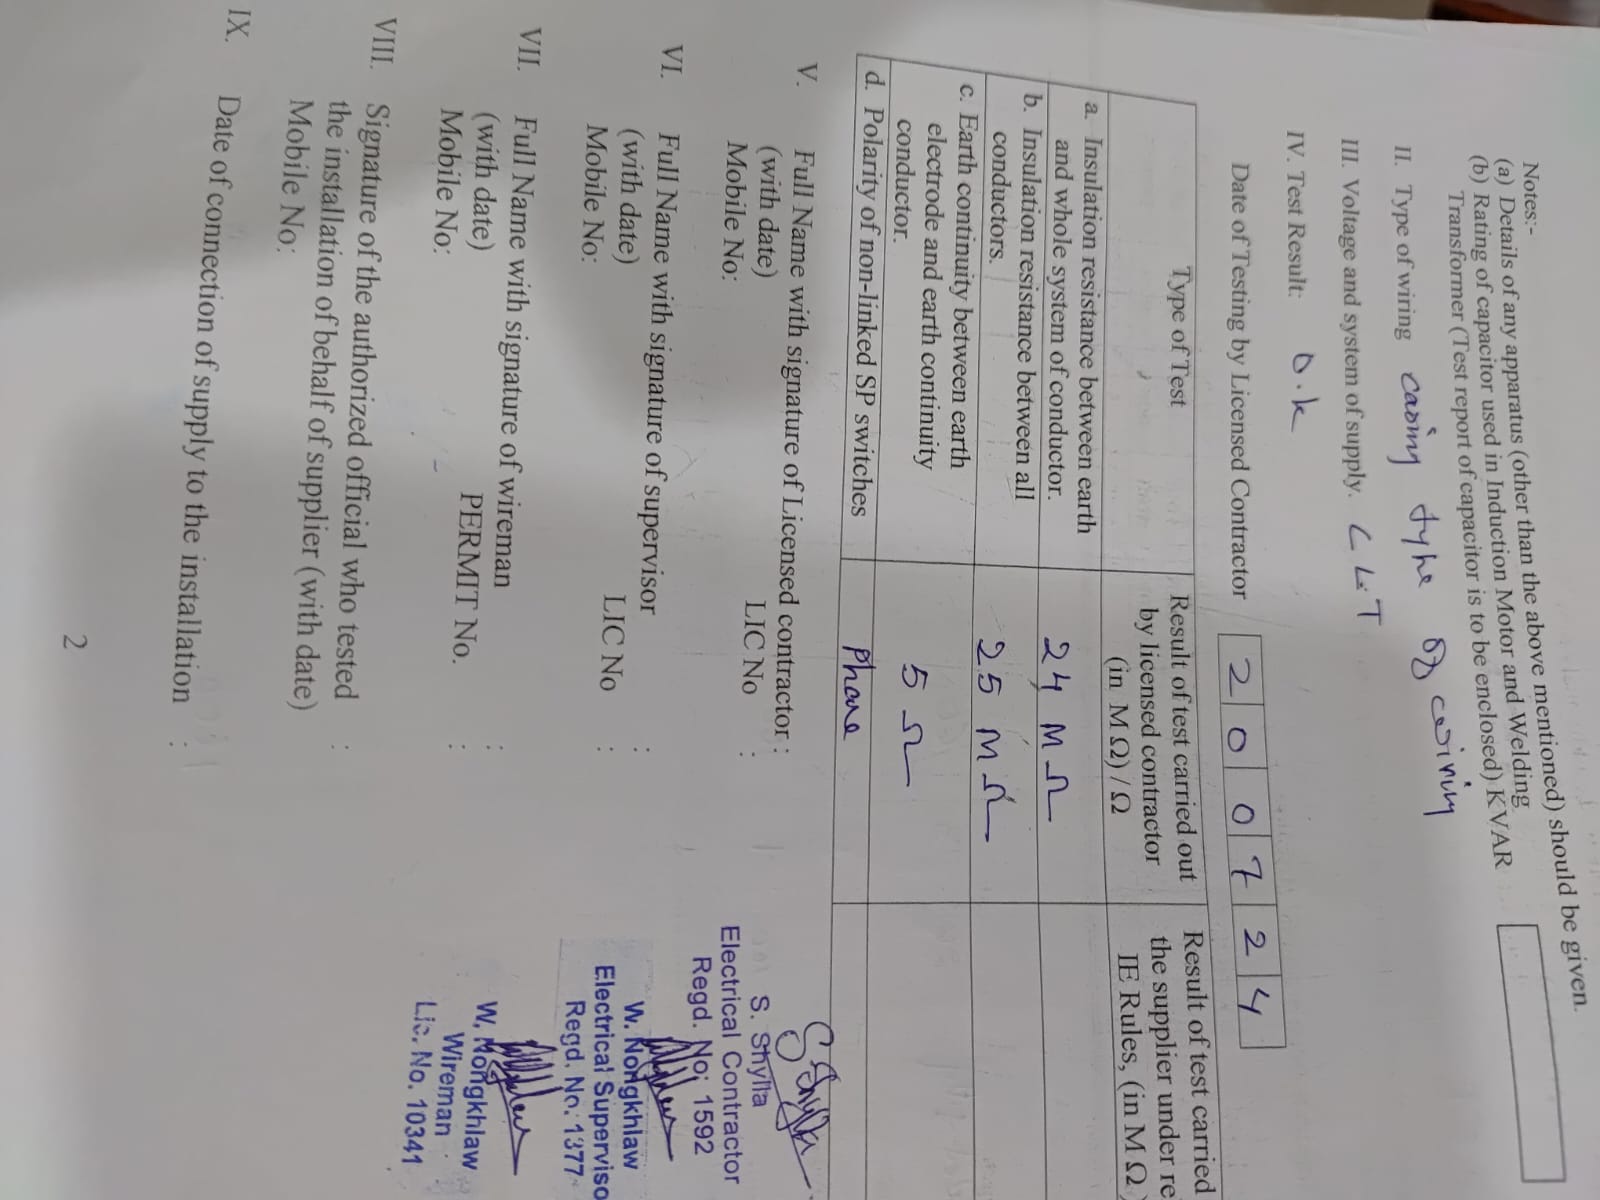 Notes:-
(a) Details of any apparatus (other than the above mentioned) should be given.
(b) Rating of capacitor used in Induction Motor and Welding
Transformer (Test report of capacitor is to be enclosed) KVAR
II. Type of wiring casing type of casing
III. Voltage and system of supply. LT
IV. Test Result: O.k
Date of Testing by Licensed Contractor 2 0 0 7 2 4
Type of Test
Result of test carried out
by licensed contractor
(in M Ω) / Ω
Result of test carried
the supplier under re
IE Rules, (in M Ω)
a. Insulation resistance between earth
and whole system of conductor.
24 M Ω
b. Insulation resistance between all
conductors.
25 M Ω
c. Earth continuity between earth
electrode and earth continuity
conductor.
5 Ω
d. Polarity of non-linked SP switches
Phase
V. Full Name with signature of Licensed contractor :
(with date)
Mobile No: LIC No :
S. Shylla
Electrical Contractor
Regd. No: 1592
VI. Full Name with signature of supervisor
(with date) :
Mobile No: LIC No :
W. Nongkhlaw
Electrical Superviso
Regd. No: 1377
VII. Full Name with signature of wireman
(with date) :
Mobile No: PERMIT No. :
W. Nongkhlaw
Wireman
Lic. No. 10341
VIII. Signature of the authorized official who tested
the installation of behalf of supplier (with date) :
Mobile No:
IX. Date of connection of supply to the installation :
2